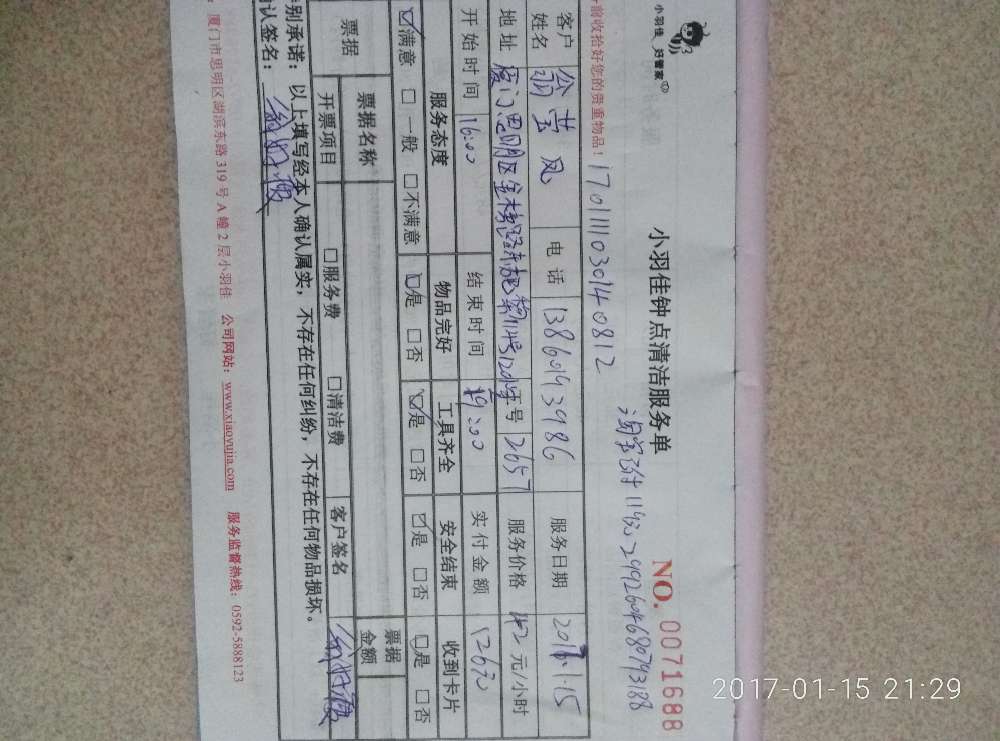 小羽佳 好管家
小羽佳钟点清洁服务单
NO. 0071688
前收拾好您的贵重物品！
17011103014 0812
客户姓名
电话 13860143986
服务日期
地址
工号 2657
服务价格 42 元/小时
开始时间 16:00
结束时间 19:00
实付金额 126元
服务态度 物品完好 工具齐全 安全结束 收到卡片
☑满意 □一般 □不满意 ☑是 □否 ☑是 □否 ☑是 □否 ☑是 □否
票据 票据名称 票据金额
开票项目 □服务费 □清洁费 客户签名
别承诺：以上填写经本人确认属实，不存在任何纠纷，不存在任何物品损坏。
认签名：
厦门市思明区湖滨东路 319 号 A 幢 2 层小羽佳 公司网站：www.xiaoyujia.com 服务监督热线：0592-5888123
2017-01-15 21:29